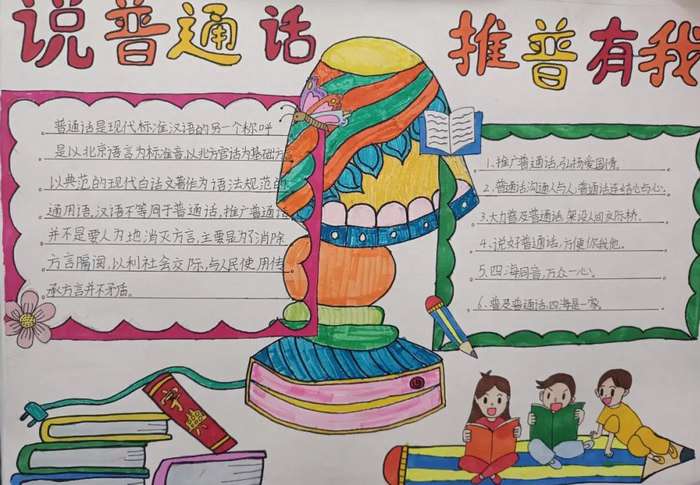 说普通话
推普有我
普通话是现代标准汉语的另一个称呼
是以北京语言为标准音以北方官话为基础方
以典范的现代白话文著作为语法规范的
通用语,汉语不等同于普通话,推广普通话
并不是要人为地消灭方言,主要是为了消除
方言隔阂,以利社会交际,与人民使用传
承方言并不矛盾。
1、推广普通话,弘扬爱国情。
2、普通话沟通人与人普通话连结心与心。
3、大力普及普通话,架设人间交际桥。
4、说好普通话,方便你我他。
5、四海同音,万众一心。
6、普及普通话,四海是一家。
字典